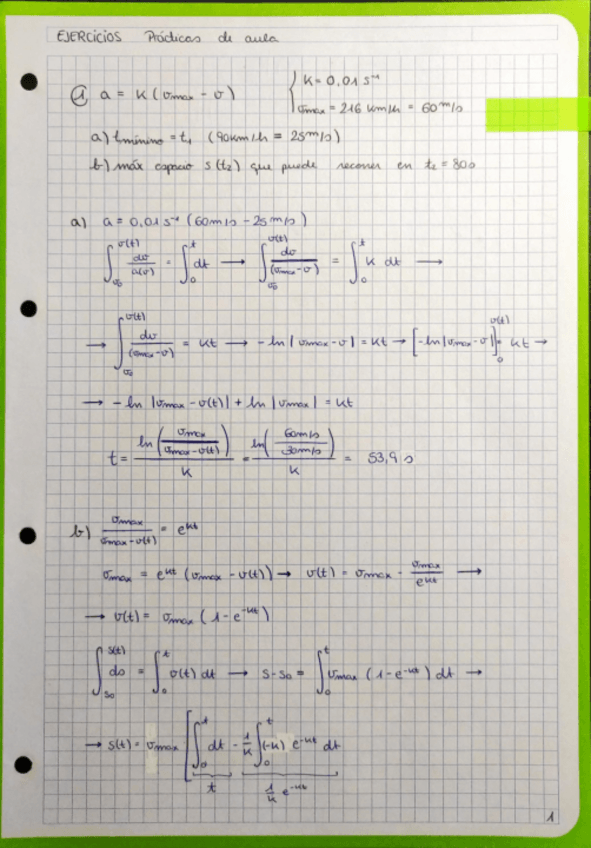 EJERCICIOS Prácticas de aula
① a = K (vmax - v) { K = 0,01 s⁻¹
vmax = 216 km/h = 60 m/s
a) tmínimo = t₁ (90 km/h = 25 m/s)
b) máx espacio s(t₂) que puede recorrer en t₂ = 80 s
a) a = 0,01 s⁻¹ (60 m/s - 25 m/s)
∫_{v₀}^{v(t)} dv/a(v) = ∫_0^t dt → ∫_{v₀}^{v(t)} dv/(vmax - v) = ∫_0^t K dt →
→ ∫_{v₀}^{v(t)} dv/(vmax - v) = Kt → -ln |vmax - v| = Kt → [-ln |vmax - v|]_0^{v(t)} = Kt →
→ -ln |vmax - v(t)| + ln |vmax| = Kt
t = ln(vmax/(vmax - v(t)))/K = ln(60 m/s/30 m/s)/K = 53,9 s
b) vmax/(vmax - v(t)) = e^{Kt}
vmax = e^{Kt} (vmax - v(t)) → v(t) = vmax - vmax/e^{Kt} →
→ v(t) = vmax (1 - e^{-Kt})
∫_{s₀}^{s(t)} ds = ∫_0^t v(t) dt → s - s₀ = ∫_0^t vmax (1 - e^{-Kt}) dt →
→ s(t) = vmax [∫_0^t dt - 1/K ∫_0^t (-K) e^{-Kt} dt
t 1/K e^{-Kt}
1